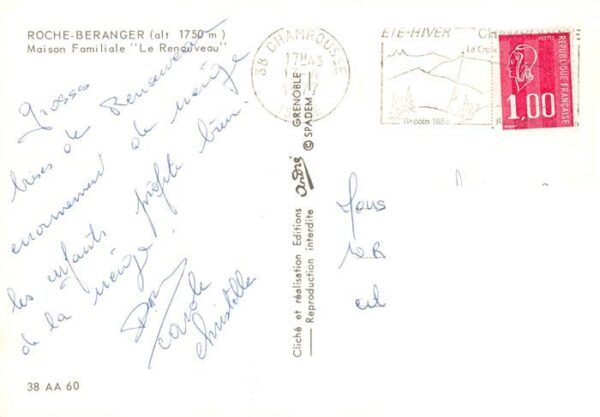 ROCHE-BERANGER (alt 1750 m)
Maison Familiale "Le Renouveau"
grosses
bises de Renouveau
enormement de neige
les enfants profite bien
de la neige.
carole
christelle
38 AA 60
Cliché et réalisation Editions André GRENOBLE
Reproduction interdite © SPADEM
38 CHAMROUSSE
17H45
ETE-HIVER
La Croix
Recoin 1650
REPUBLIQUE FRANÇAISE
1,00